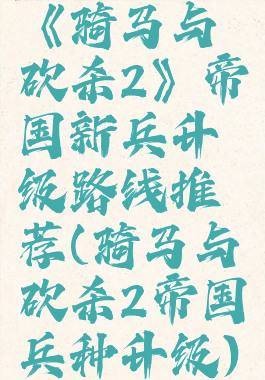 《骑马与
砍杀2》帝
国新兵升
级路线推
荐(骑马与
砍杀2帝国
兵种升级)